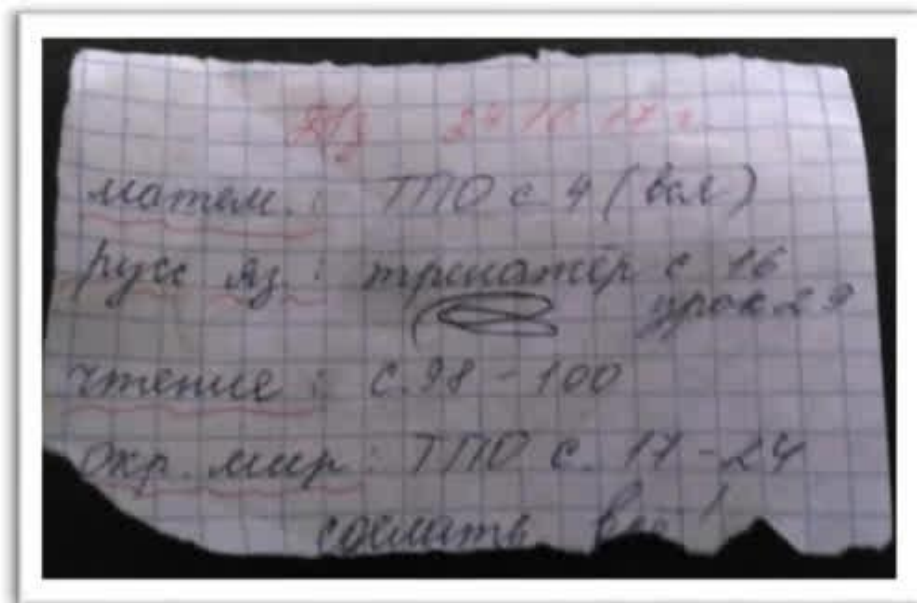 Д/з 24 10 17 г.
матем.: ТПО с 4 (вся)
русс яз.: тренажёр с 16
урок 29
чтение: с. 98 - 100
окр. мир: ТПО с. 17 - 24
сделать всё!